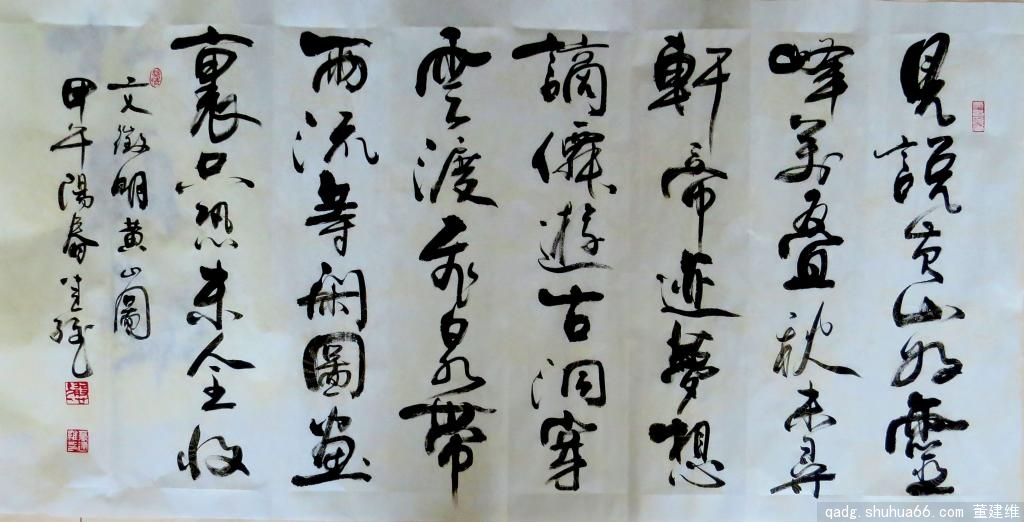 見說黃山好靈
峰萬疊秋未尋
軒帝迹夢想
謫僊遊古洞穿
雲渡飛泉帶
雨流等閑圖畫
裏只恐未全收
文徵明黃山圖
甲午陽春建維
qadg.shuhua66.com 董建维